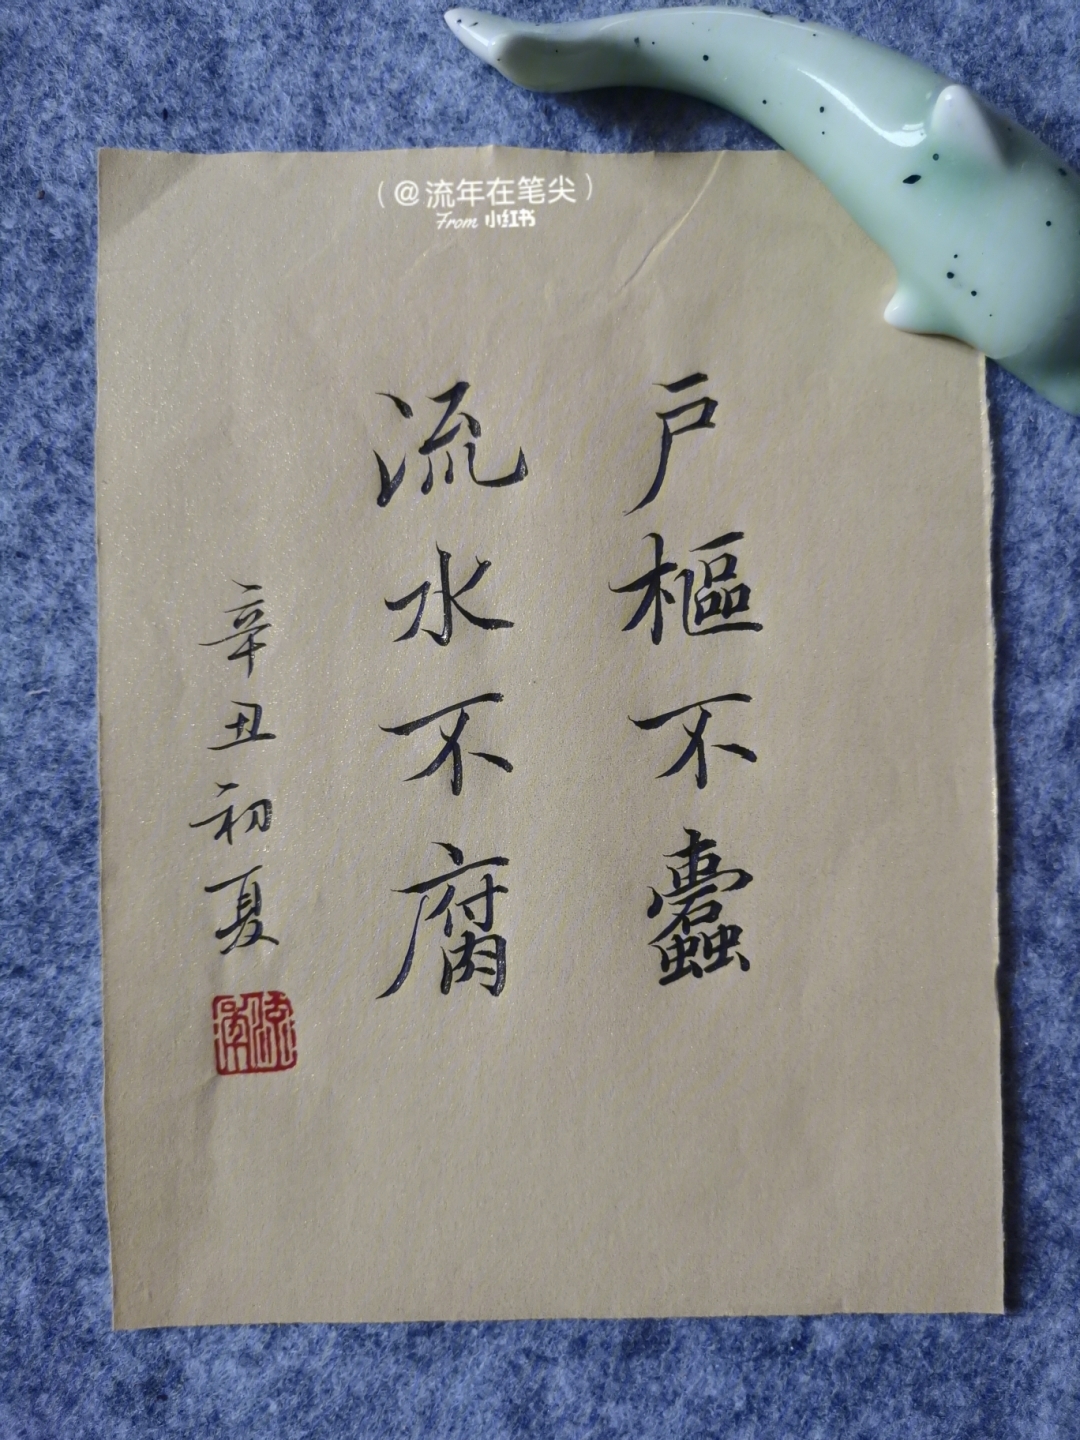 （@流年在笔尖）
From 小红书
户樞不蠹
流水不腐
辛丑初夏